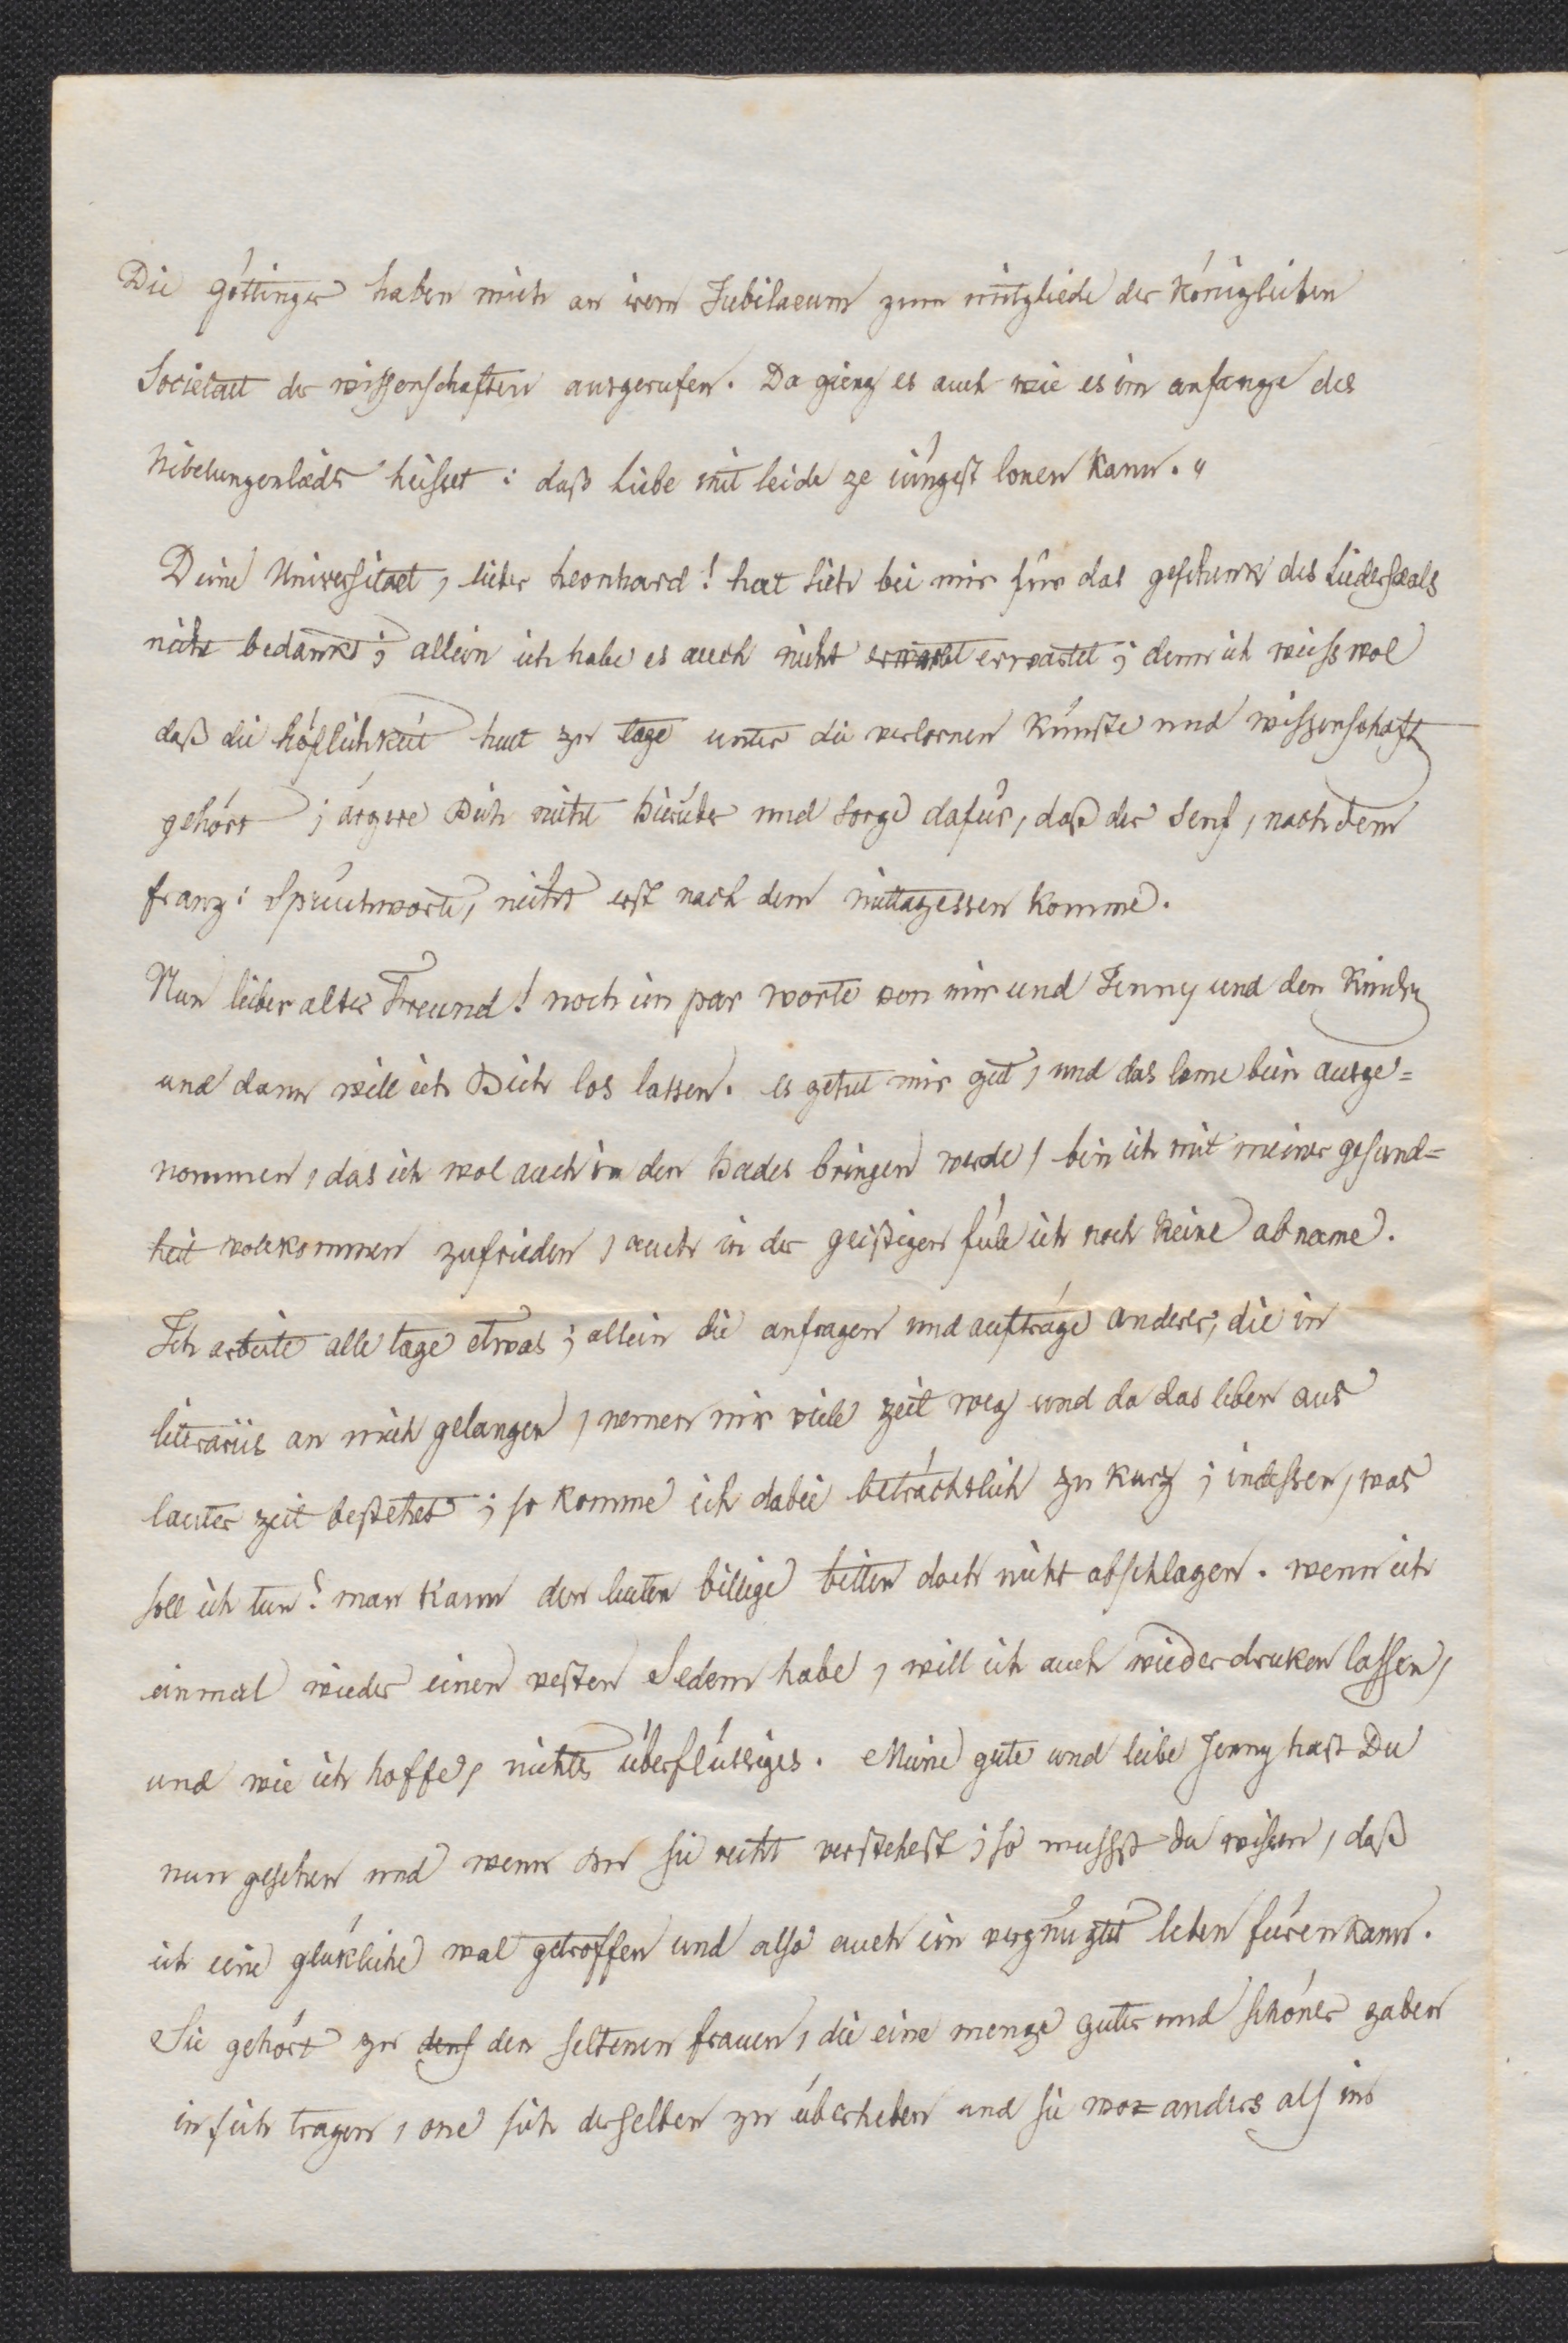 Die göttinger haben mich an irem Jubilaeum zum mitgliede der Königlichen
Societaet der wissenschaften ausgerufen. Da gieng es auch wie es im anfange des
Nibelungenlieds heisset: daß liebe mit leide ze iungest lonen kann."
Deine Universitaet, lieber Leonhard! hat sich bei mir für das geschenk des Liedersaals
nicht bedankt; allein ich habe es auch nicht erwartet erwartet; denn ich weiss wol
daß die höflichkeit heut zu tage unter die verlornen Künste und wissenschaft
gehört; ärgere Dich nicht hierüber und sorge dafür, daß der Senf, nach dem
franz: Sprüchworte, nicht erst nach dem mittagessen komme.
Nun lieber alter Freund! noch ein par worte von mir und Jenny und den Kindern
und dann will ich Dich los lassen. es gehet mir gut, und das lame bein ausge=
nommen, das ich wol auch in den Hades bringen werde, bin ich mit meiner gesund=
heit volkommen zufrieden, auch in der geistigen füle ich noch keine abname.
Ich arbeite alle tage etwas; allein die anfragen und aufträge anderer, die in
literariis an mich gelangen, nemen mir viele zeit weg und da das leben aus
lauter zeit bestehet; so komme ich dabei beträchtlich zu kurz; indessen, was
soll ich tun? man kann den leuten billige bitten doch nicht abschlagen. wenn ich
einmal wieder einen vesten Sedem habe, will ich auch wieder druken lassen,
und wie ich hoffe, nichts überflüssiges. Meine gute und liebe Jenny hast Du
nun gesehen und wenn Du sie recht verstehest; so mussst du wissen, daß
ich eine glükliche wal getroffen und also auch ein vergnügtes leben füren kann.
Sie gehört zu den den seltenen frauen, die eine menge guter und schöner gaben
in sich tragen, one sich derselben zu überheben und sie wo anders als ins